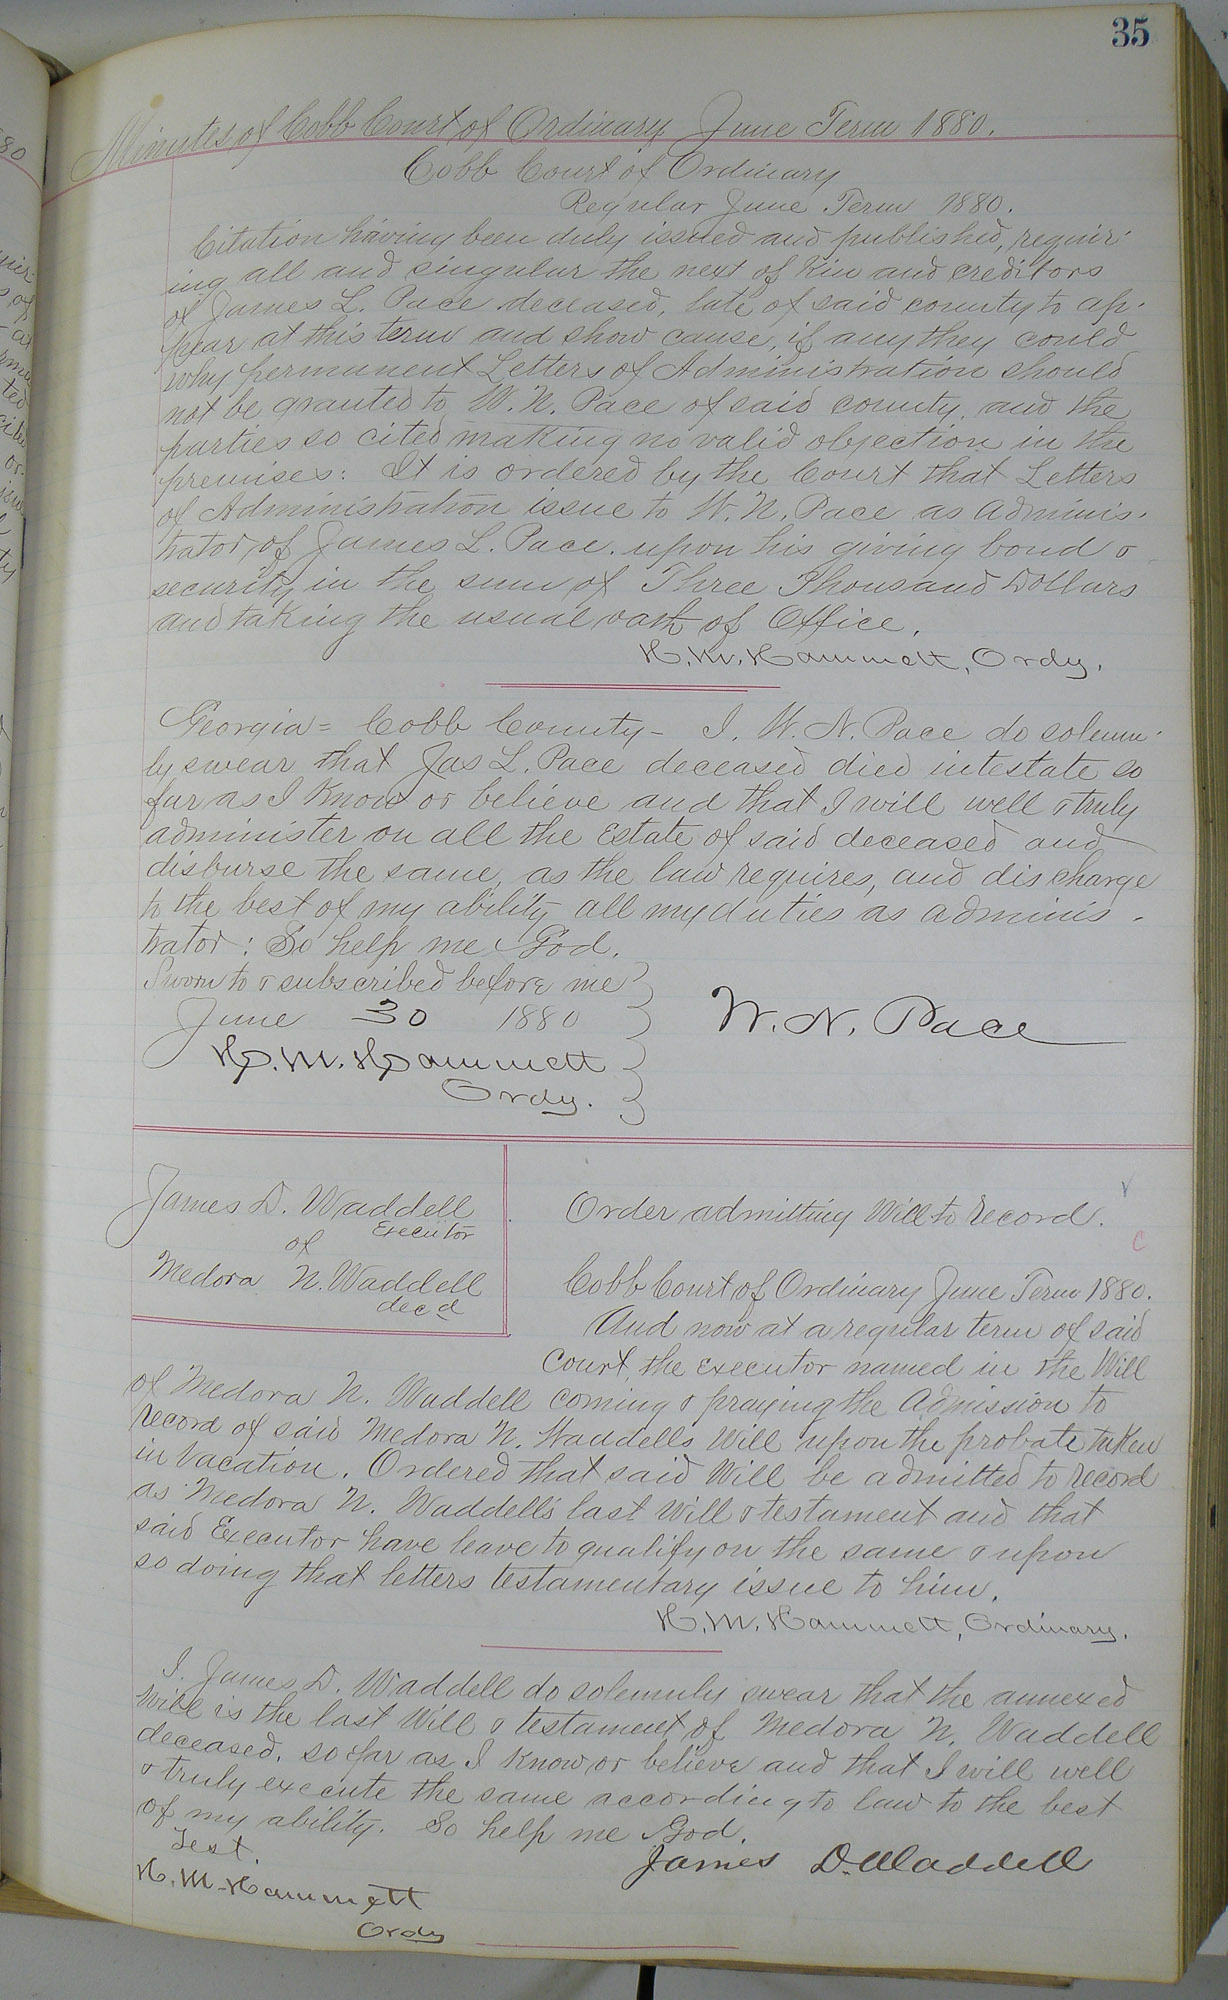 35
Minutes of Cobb Court of Ordinary June Term 1880.
Cobb Court of Ordinary
Regular June Term 1880.
Citation having been duly issued and published, requir-
ing all and singular the next of Kin and creditors
of James L. Pace deceased, late of said county to ap-
pear at this term and show cause, if any they could
why permanent Letters of Administration should
not be granted to W. N. Pace of said county, and the
parties so cited making no valid objection in the
premises: It is ordered by the Court that Letters
of Administration issue to W. N. Pace as adminis-
trator, of James L. Pace. upon his giving bond &
security in the sum of Three Thousand Dollars
and taking the usual oath of Office.
H. M. Hammett, Ordy.
Georgia = Cobb County - I, W. N. Pace do solemn-
ly swear that Jas L. Pace deceased died intestate so
far as I Know or believe and that I will well & truly
administer on all the Estate of said deceased and
disburse the same, as the law requires, and discharge
to the best of my ability all my duties as adminis-
trator: So help me God.
Sworn to & subscribed before me
June 30 1880
W. N. Pace
H. M. Hammett
Ordy.
James D. Waddell
Executor
of
Medora N. Waddell
decd
Order admitting Will to Record.
Cobb Court of Ordinary June Term 1880.
And now at a regular term of said
Court, the executor named in the Will
of Medora N. Waddell coming & praying the Admission to
record of said Medora N. Waddells Will upon the probate taken
in Vacation. Ordered that said Will be admitted to record
as Medora N. Waddell's last Will & testament and that
said Executor have leave to qualify on the same & upon
so doing that letters testamentary issue to him.
H. M. Hammett, Ordinary.
I, James D. Waddell do solemnly swear that the annexed
Will is the last Will & testament of Medora N. Waddell
deceased, so far as I Know or believe and that I will well
& truly execute the same according to law to the best
of my ability. So help me God.
Test.
James D. Waddell
H. M. Hammett
Ordy